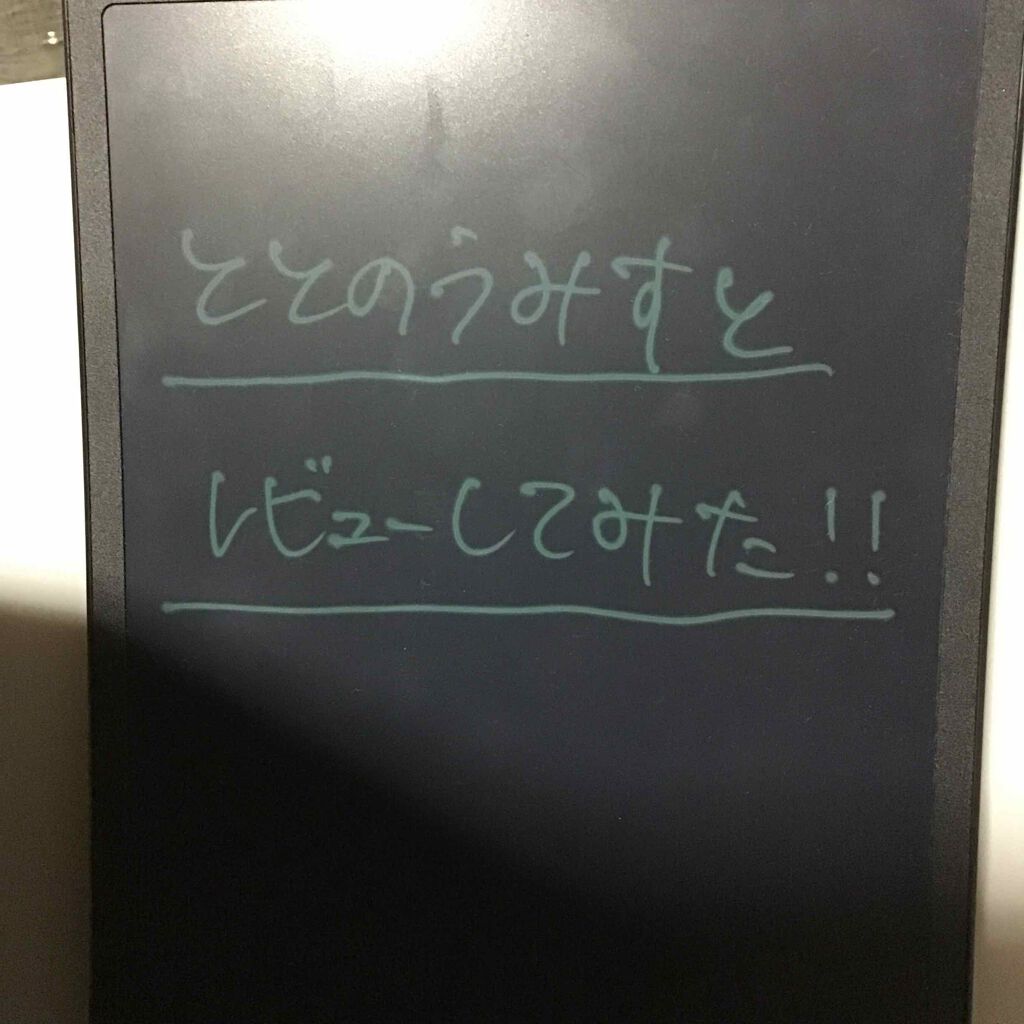 ととのうみすと
レビューしてみた!!